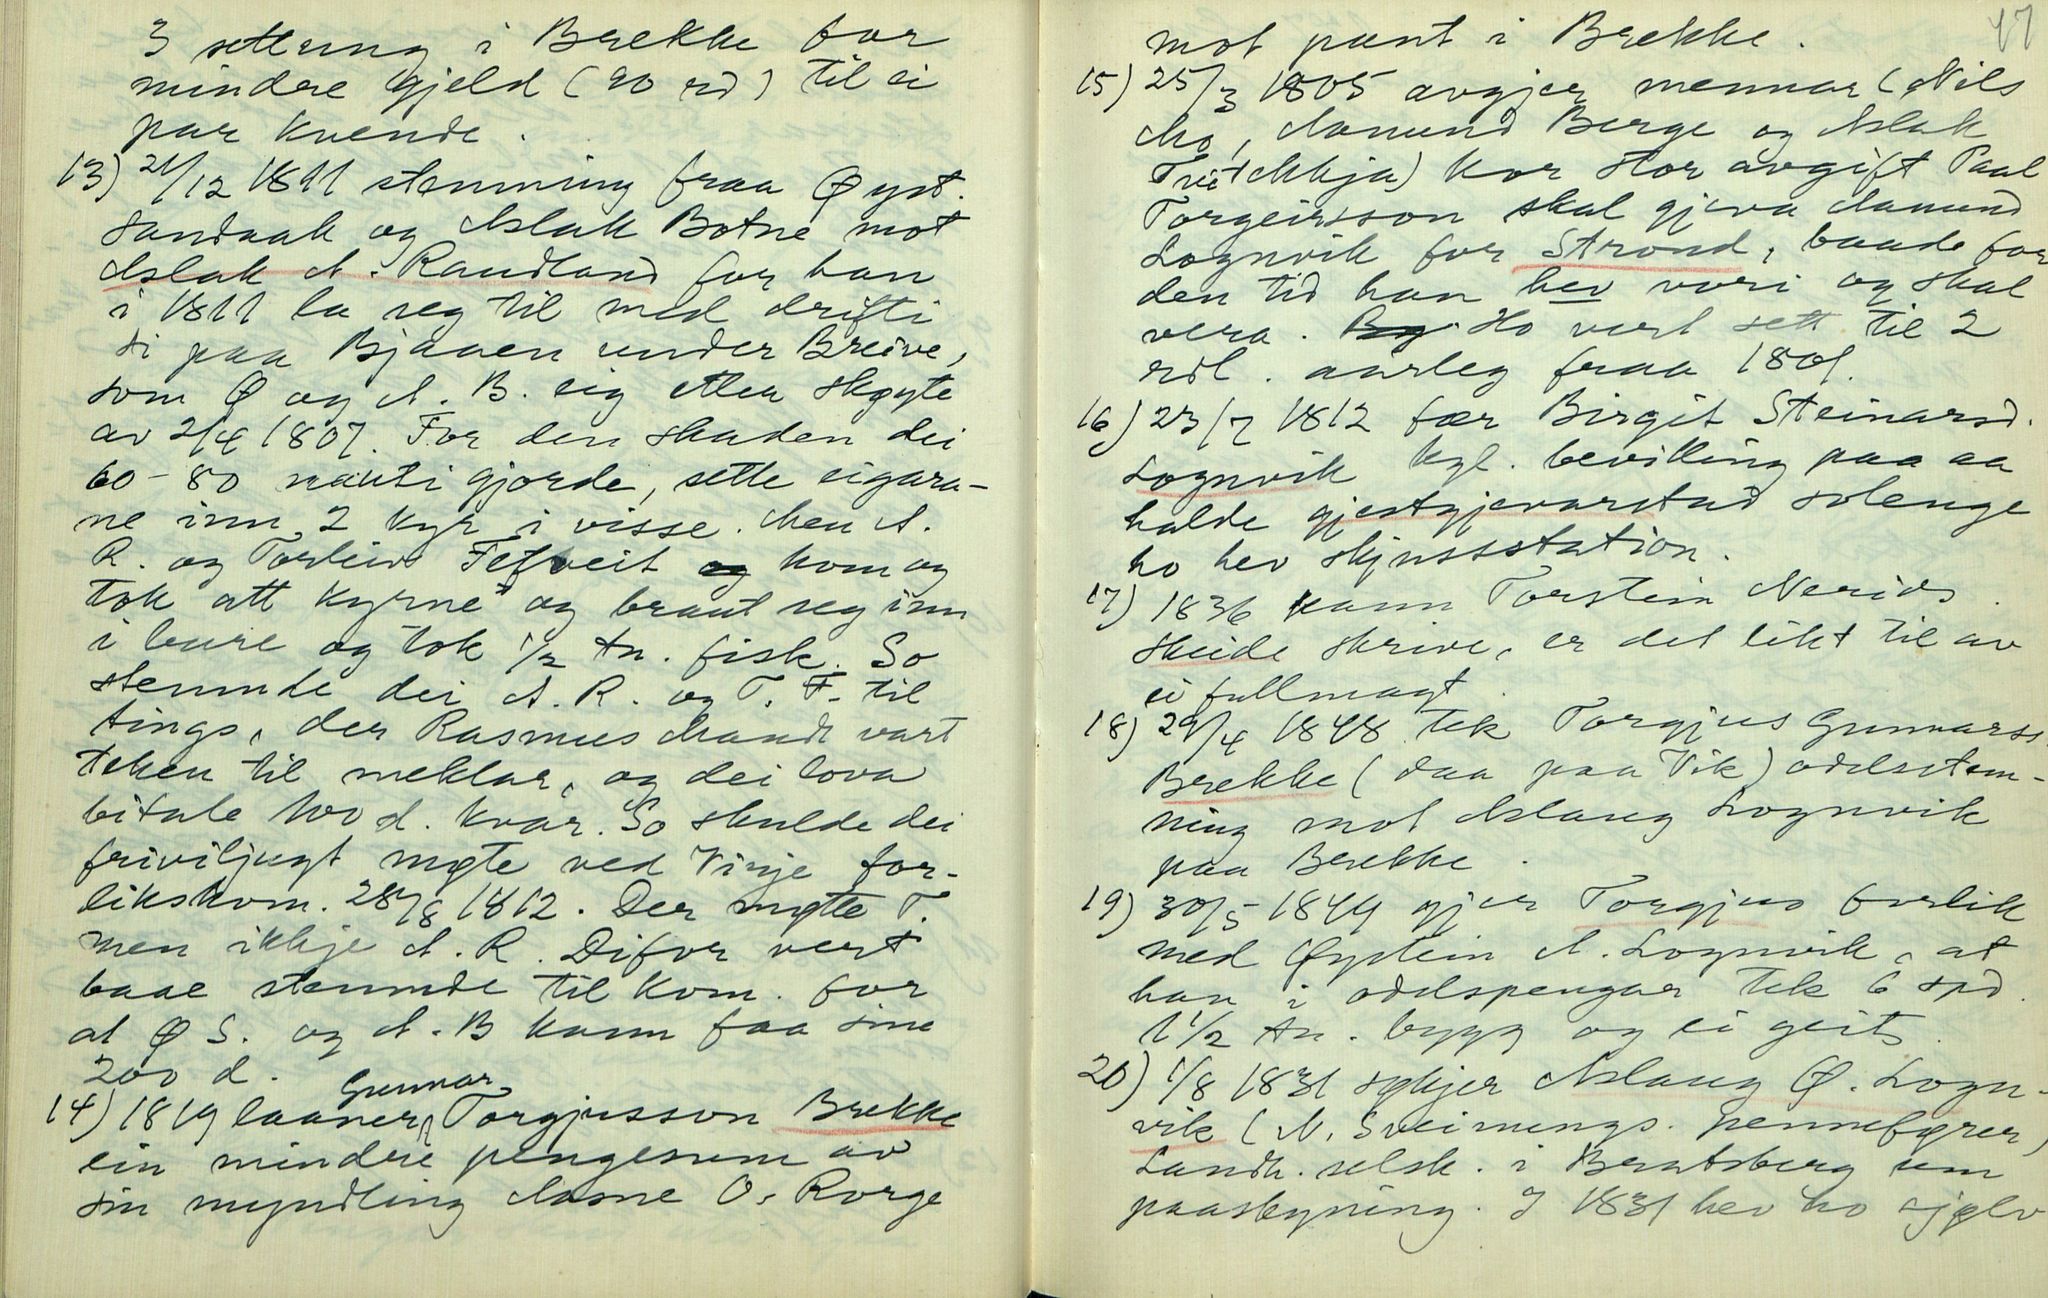 3 setting i Brekke for
mindre gjeld (90 rd) til ei
par kvende.
13) 21/12 1811 stemning fraa Øyst.
Sandaak og Aslak Botne mot
Aslak A. Raudland for han
i 1811 la seg til med drifti
si paa Bjaaen under Breive,
som Ø og A. B. eig etter skøyte
av 2/4 1807. For den skaden dei
60-80 nauti gjorde, sette eigara-
ne inn 2 kyr i visse. Men A.
R. og Torleiv Fetveit kom og
tok att kyrne og braut seg inn
i bure og tok 1/2 tn. fisk. So
stemnde dei A. R. og T. F. til
tings, der Rasmus Mandt vart
teken til meklar, og dei lova
bitale 100 d. kvar. So skulde dei
friviljugt møte ved Vinje for-
likskom. 28/8 1812. Der møtte T.
men ikkje A. R. Difor vert
baae stemnde til kom. for
at Ø S. og A. B kann faa sine
200 d.
14) 1819 laaner Gunnar Torgjusson Brekke
ein mindre pengesum av
sin myndling Aasne O. Rorge
47
mot pant i Brekke.
15) 25/3 1805 avgjer mennar (Nils
Mo, Aamund Berge og Aslak
Tveitekkja) kor stor avgift Paal
Torgeirsson skal gjeva Aamund
Lognvik for Strond, baade for
den tid han hev vori og skal
vera. Ho vert sett til 2
rdl. aarleg fraa 1801.
16) 23/7 1812 fær Birgit Steinarsd.
Lognvik kgl. bevilling paa aa
halde gjestgjevarstad solenge
ho hev skjussstation.
17) 1836 kann Torstein Nerids.
Skeide skrive, er det likt til av
ei fullmagt.
18) 29/4 1848 tek Torgjus Gunnarss.
Brekke (daa paa Vik) odelsstem-
ning mot Aslaug Lognvik
paa Brekke.
19) 30/5 1849 gjer Torgjus forlik
med Øystein A. Lognvik, at
han i odelspengar tek 6 spd.
1 1/2 tn. bygg og ei geit.
20) 1/8 1831 søkjer Aslaug Ø. Logn-
vik (N. Sveinungs. pennefører)
Landh. selsk. i Bratsberg um
paaskyning. I 1831 hev ho sjølv